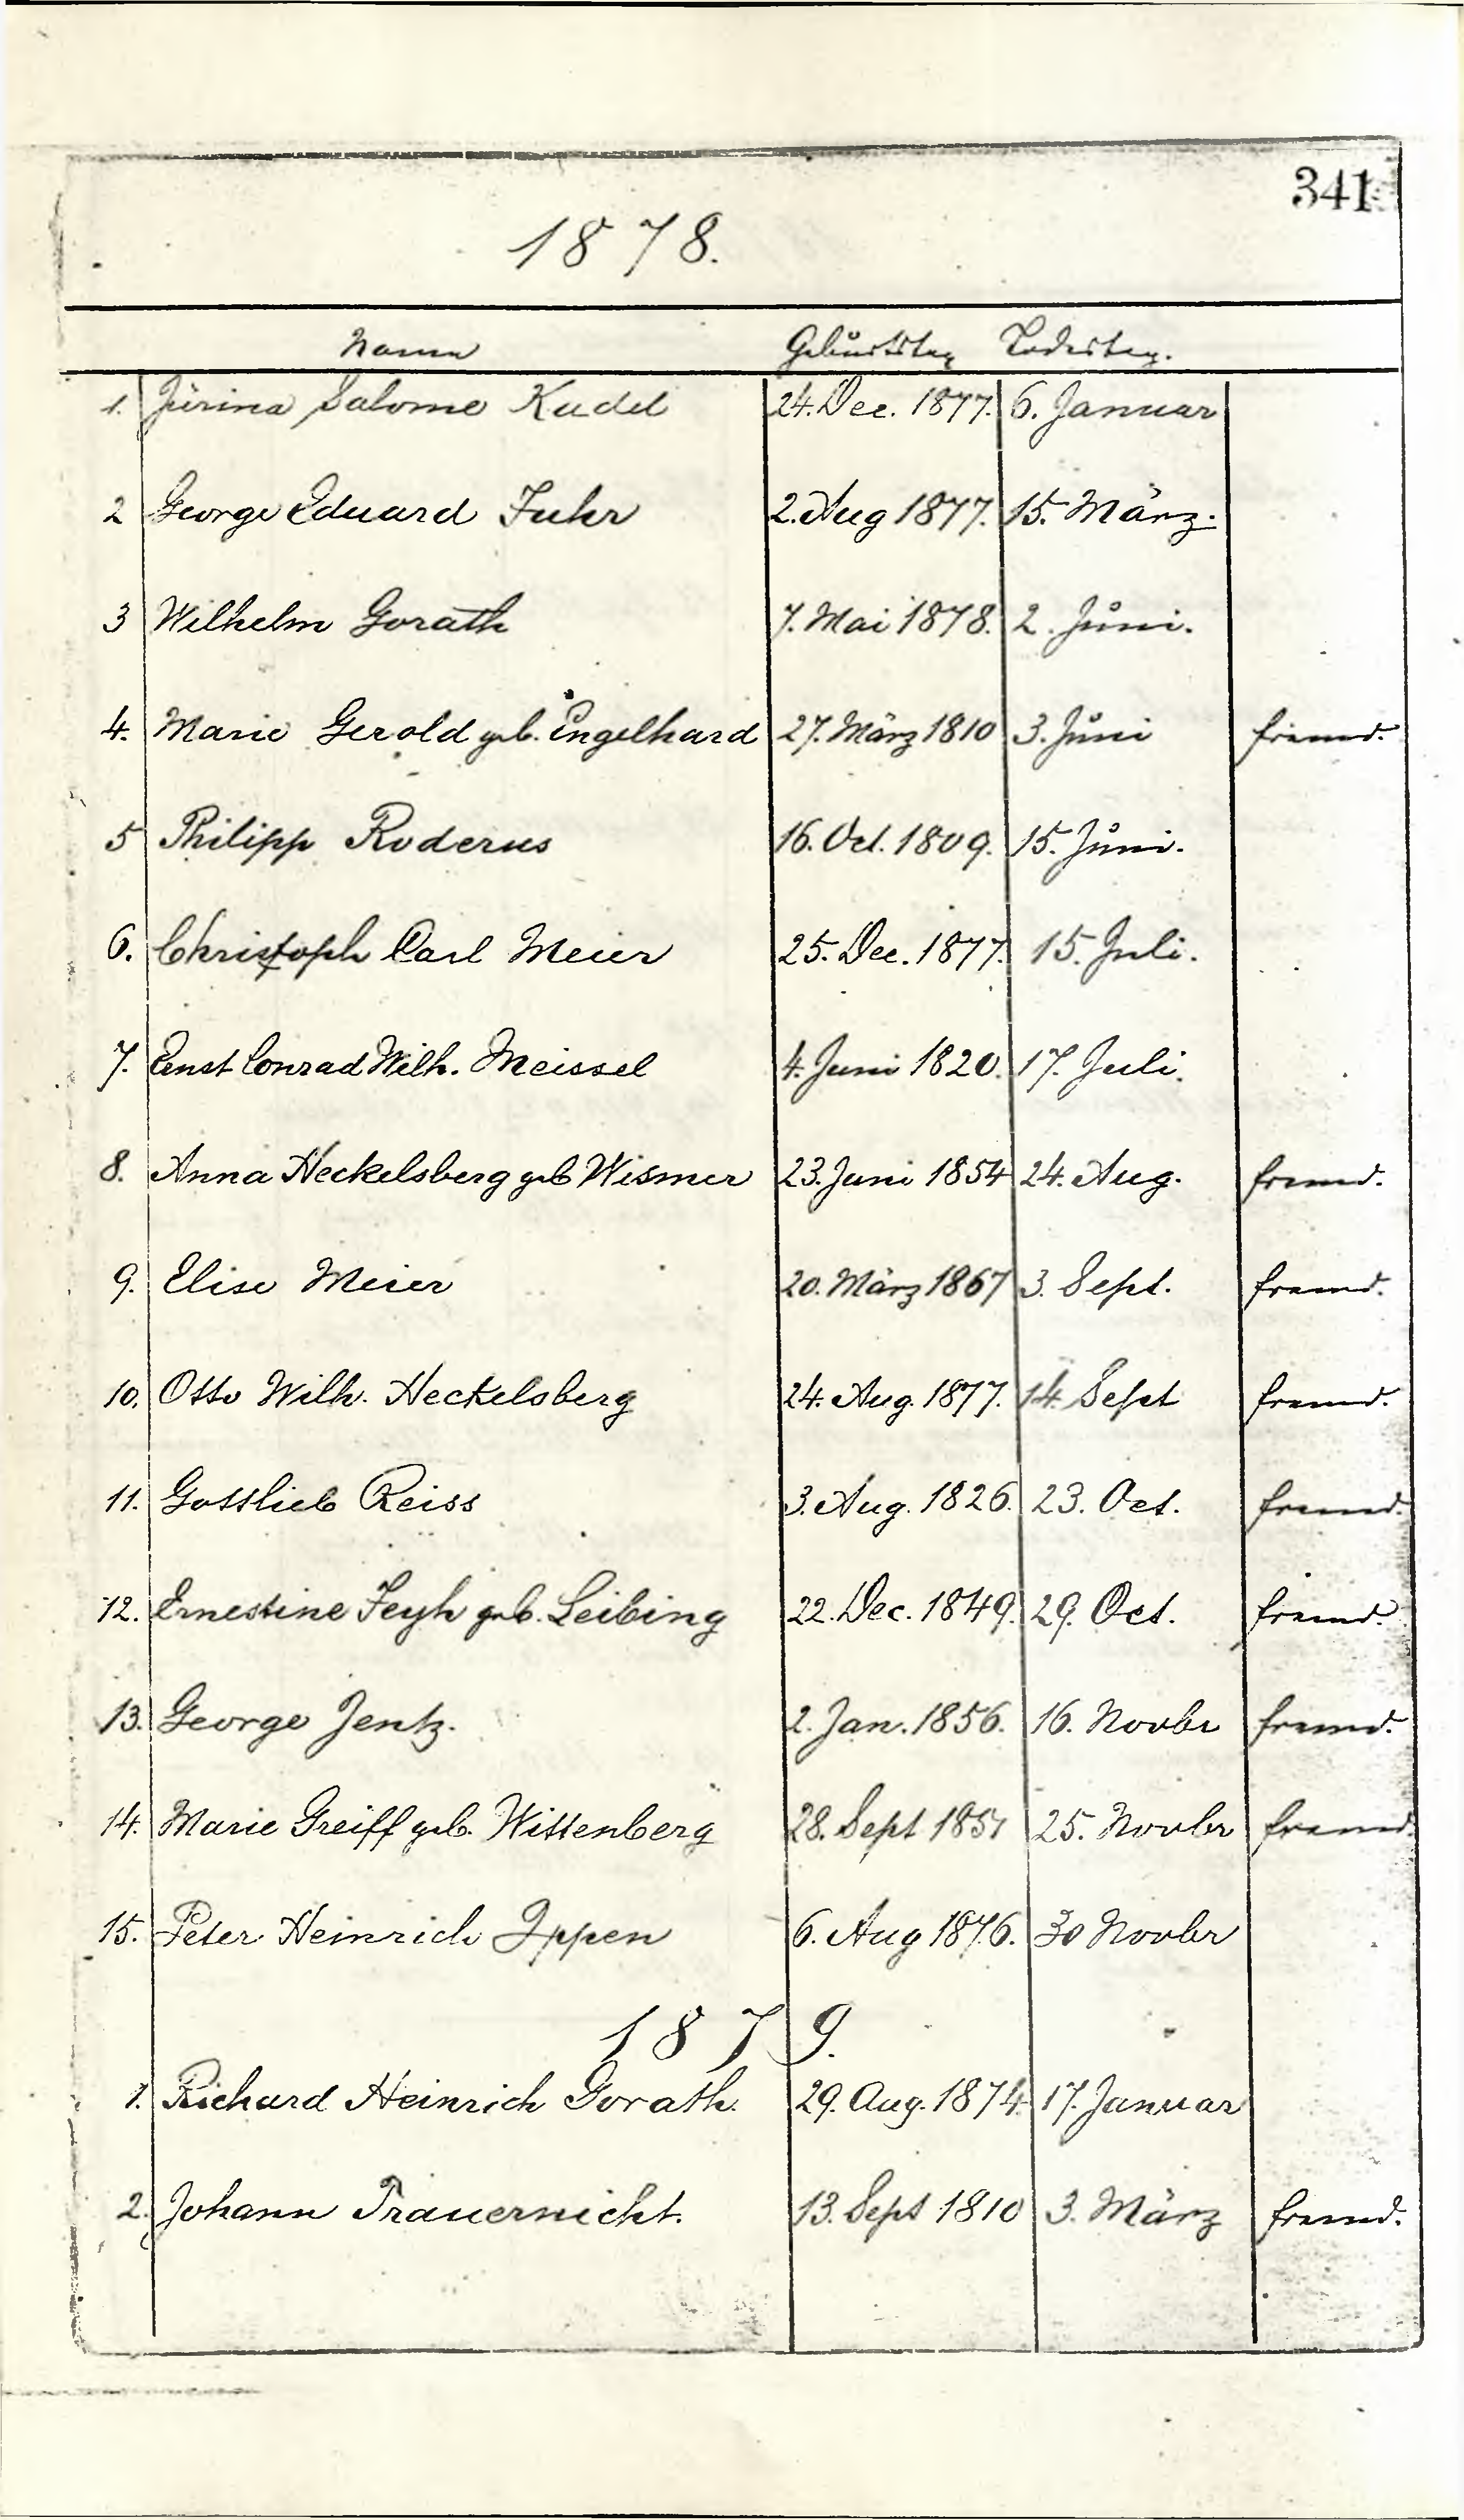 341
1878.
Name Geburtstag Todestag.
1. Jürina Salome Kudel 24. Dec. 1877. 6. Januar
2 George Eduard Fuhr 2. Aug 1877. 15. März.
3 Wilhelm Gorath 7. Mai 1878. 2. Juni.
4. Marie Gerold geb. Engelhard 27. März 1810 3. Juni fremd.
5 Philipp Roderus 16. Oct. 1809. 15. Juni.
6. Christoph Carl Meier 25. Dec. 1877. 15. Juli.
7. Ernst Conrad Wilh. Meissel 4. Juni 1820. 17. Juli.
8. Anna Heckelsberg geb Wismer 23. Juni 1854 24. Aug. fremd.
9. Elise Meier 20. März 1867 3. Sept. fremd.
10. Otto Wilh. Heckelsberg 24. Aug. 1877. 14. Sept fremd.
11. Gottlieb Reiss 3. Aug. 1826. 23. Oct. fremd.
12. Ernestine Feyh geb. Leibing 22. Dec. 1849. 29. Oct. fremd.
13. George Jentz. 2. Jan. 1856. 16. Novbr fremd.
14. Marie Greiff geb. Wittenberg 28. Sept 1851 25. Novbr fremd.
15. Peter Heinrich Ippen 6. Aug 1876. 30 Novbr
1879.
1. Richard Heinrich Gorath. 29. Aug. 1874. 17. Januar
2. Johann Trauernicht. 13. Sept 1810 3. März fremd.